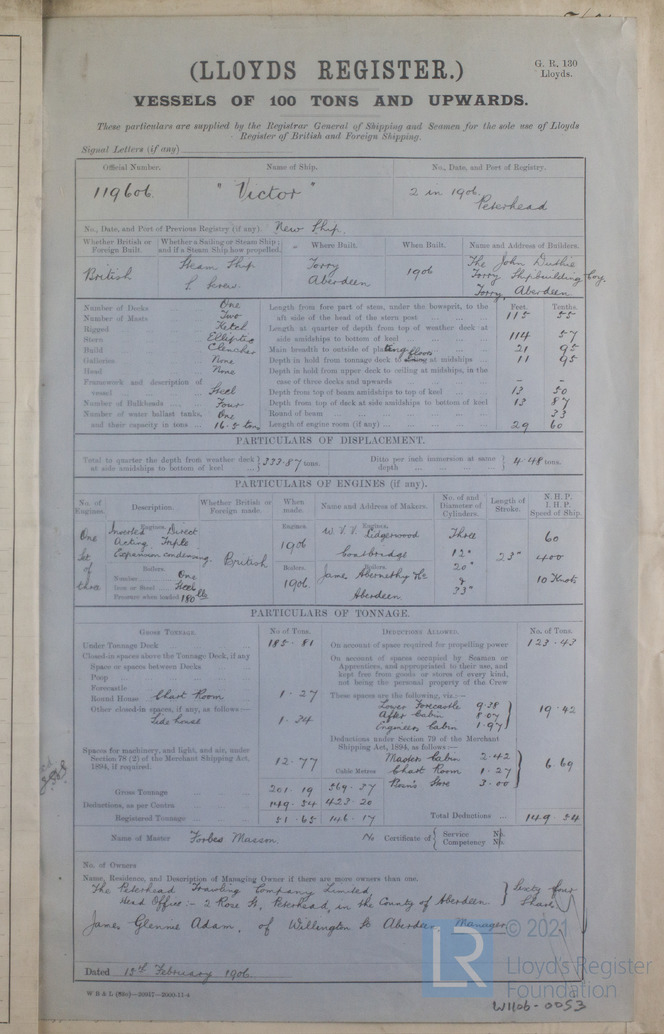 (LLOYDS REGISTER.)
G. R. 130
Lloyds.
VESSELS OF 100 TONS AND UPWARDS.
These particulars are supplied by the Registrar General of Shipping and Seamen for the sole use of Lloyds
Register of British and Foreign Shipping.
Signal Letters (if any)
Official Number. Name of Ship. No., Date, and Port of Registry.
119606. "Victor" 2 in 1906. Peterhead
No., Date, and Port of Previous Registry (if any): New Ship.
Whether British or Foreign Built. Whether a Sailing or Steam Ship; and if a Steam Ship how propelled. Where Built. When Built. Name and Address of Builders.
British Steam Ship S. Screw. Torry Aberdeen 1906 The John Duthie Torry Shipbuilding Coy. Torry Aberdeen
Feet. Tenths.
Number of Decks One
Number of Masts Two
Rigged Ketch
Stern Elliptic
Build Clencher
Galleries None
Head None
Framework and description of vessel Steel
Number of Bulkheads Four
Number of water ballast tanks, and their capacity in tons One 16.5 tons
Length from fore part of stem, under the bowsprit, to the aft side of the head of the stern post 115 55
Length at quarter of depth from top of weather deck at side amidships to bottom of keel 114 57
Main breadth to outside of plating 21 95
Depth in hold from tonnage deck to floors at midships 11 95
Depth in hold from upper deck to ceiling at midships, in the case of three decks and upwards - -
Depth from top of beam amidships to top of keel 13 50
Depth from top of deck at side amidships to bottom of keel 13 87
Round of beam 33
Length of engine room (if any) 29 60
PARTICULARS OF DISPLACEMENT.
Total to quarter the depth from weather deck at side amidships to bottom of keel 333.87 tons. Ditto per inch immersion at same depth 4.48 tons.
PARTICULARS OF ENGINES (if any).
No. of Engines. Description. Whether British or Foreign made. When made. Name and Address of Makers. No. of and Diameter of Cylinders. Length of Stroke. N. H. P. I. H. P. Speed of Ship.
One Set of three
Engines. Inverted Direct Acting Triple Expansion condensing. British
Engines. 1906 Engines. Coatbridge
Three 12" 20" & 33" 23" 60 400 10 Knots
Boilers. Number One
Iron or Steel Steel
Pressure when loaded 180 lbs
Boilers. 1906. Boilers. James Abernethy & Co Aberdeen
PARTICULARS OF TONNAGE.
GROSS TONNAGE. No. of Tons. DEDUCTIONS ALLOWED. No. of Tons.
Under Tonnage Deck 185.81
Closed-in spaces above the Tonnage Deck, if any
Space or spaces between Decks
Poop
Forecastle
Round House Chart Room 1.27
Other closed-in spaces, if any, as follows:—
Side house 1.34
Spaces for machinery, and light, and air, under Section 78 (2) of the Merchant Shipping Act, 1894, if required. 12.77
Gross Tonnage 201.19 569.37
Deductions, as per Contra 149.54 423.20
Registered Tonnage 51.65 146.17
On account of space required for propelling power 123.43
On account of spaces occupied by Seamen or Apprentices, and appropriated to their use, and kept free from goods or stores of every kind, not being the personal property of the Crew
These spaces are the following, viz.:—
Lower Forecastle 9.38
After Cabin 8.07
Engineers Cabin 1.97
19.42
Deductions under Section 79 of the Merchant Shipping Act, 1894, as follows:—
Masters Cabin 2.42
Cubic Metres Chart Room 1.27
Bosn's Store 3.00
6.69
Total Deductions 149.54
Name of Master Forbes Masson. No Certificate of Service No. Competency No.
No. of Owners
Name, Residence, and Description of Managing Owner if there are more owners than one.
The Peterhead Trawling Company Limited,
Head Office:- 2 Rose St, Peterhead, in the County of Aberdeen. Sixty four Shares
James Glennie Adam, of Wellington St Aberdeen Manager
Dated 12th February 1906.
© 2021
LR
Lloyd's Register
Foundation
W1106-0053